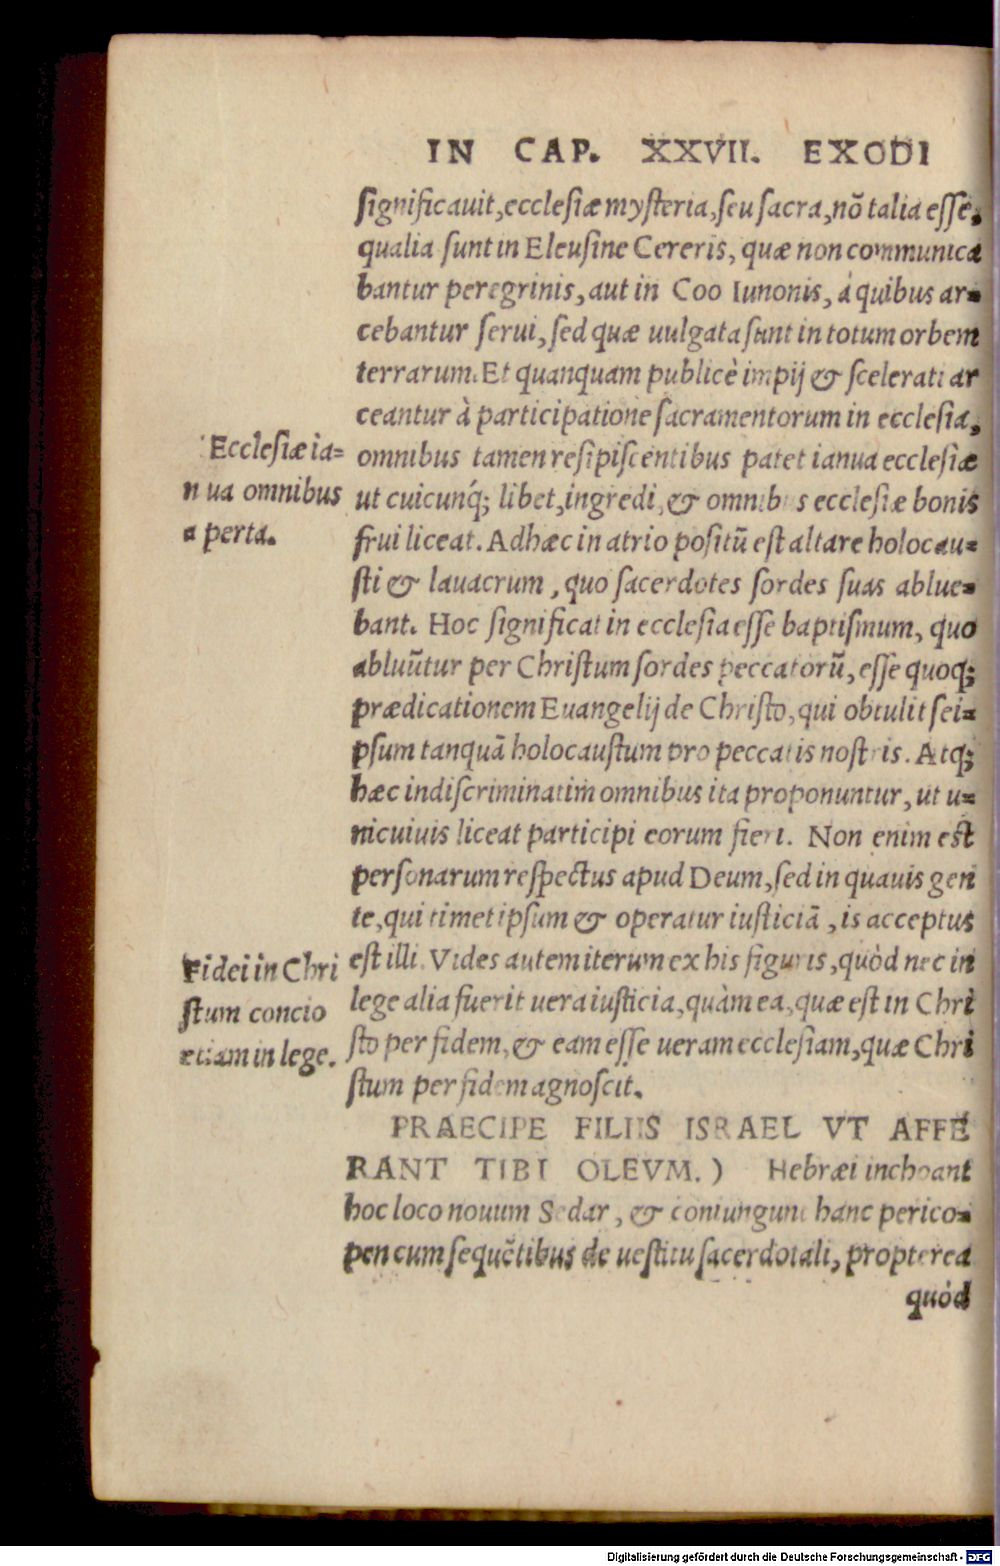 IN CAP. XXVII. EXODI
significauit, ecclesiæ mysteria, seu sacra, nō talia esse,
qualia sunt in Eleusine Cereris, quæ non communica
bantur peregrinis, aut in Coo Iunonis, á quibus ar-
cebantur serui, sed quæ uulgata sunt in totum orbem
terrarum. Et quanquam publicè impij & scelerati ar
ceantur à participatione sacramentorum in ecclesia,
omnibus tamen resipiscentibus patet ianua ecclesiæ
ut cuicunq́; libet, ingredi, & omnibus ecclesiæ bonis
frui liceat. Adhæc in atrio positū est altare holocau-
sti & lauacrum, quo sacerdotes sordes suas ablue-
bant. Hoc significat in ecclesia esse baptismum, quo
abluūtur per Christum sordes peccatorū, esse quoq;
prædicationem Euangelij de Christo, qui obtulit sei-
psum tanquā holocaustum pro peccatis nostris. Atq;
hæc indiscriminatim omnibus ita proponuntur, ut u-
nicuiuis liceat participi eorum fieri. Non enim est
personarum respectus apud Deum, sed in quauis gen
te, qui timet ipsum & operatur iusticiā, is acceptus
est illi. Vides autem iterum ex his figuris, quòd nec in
lege alia fuerit uera iusticia, quàm ea, quæ est in Chri
sto per fidem, & eam esse ueram ecclesiam, quæ Chri
stum per fidem agnoscit.
PRAECIPE FILIIS ISRAEL VT AFFE
RANT TIBI OLEVM.) Hebræi inchoant
hoc loco nouum Sedar, & coniungunt hanc perico-
pen cum sequētibus de uestitu sacerdotali, propterea
quòd
Ecclesiæ ia-
nua omnibus
aperta.
Fidei in Chri
stum concio
etiam in lege.
Digitalisierung gefördert durch die Deutsche Forschungsgemeinschaft - DFG